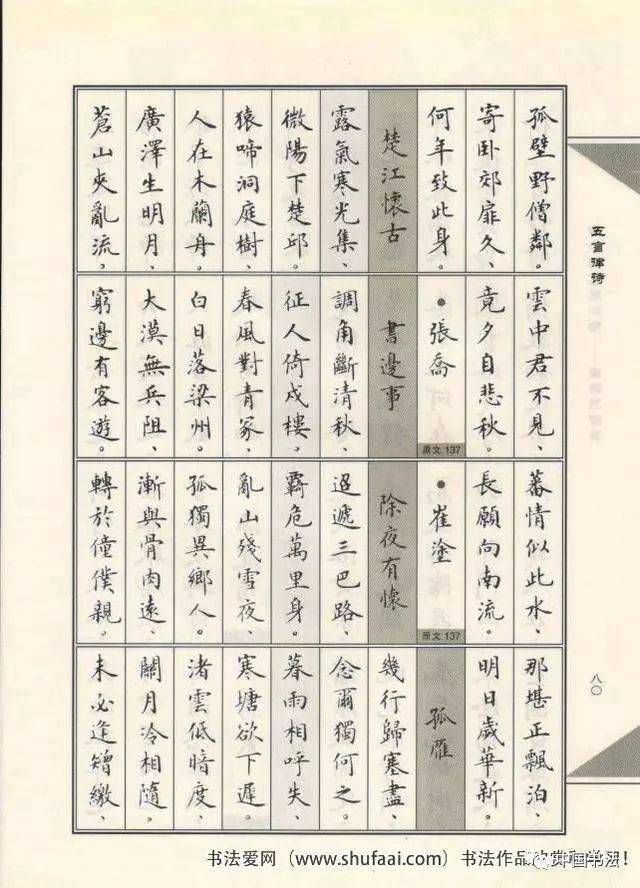 五言律诗
孤壁野僧鄰。
寄卧郊扉久、
何年致此身。
楚江懷古
露氣寒光集、
微陽下楚邱。
猿啼洞庭樹、
人在木蘭舟。
廣澤生明月、
蒼山夾亂流，
雲中君不見、
竟夕自悲秋。
●張喬
原文137
書邊事
調角斷清秋、
征人倚戍樓。
春風對青冢、
白日落梁州。
大漠無兵阻、
窮邊有客遊。
蕃情似此水、
長願向南流。
●崔塗
原文137
除夜有懷
迢遞三巴路、
羈危萬里身。
亂山殘雪夜、
孤獨異鄉人。
漸與骨肉遠、
轉於僮僕親。
那堪正飄泊、
明日歲華新。
孤雁
幾行歸塞盡、
念爾獨何之。
暮雨相呼失、
寒塘欲下遲。
渚雲低暗度、
關月冷相隨。
未必逢矰繳、
八〇
书法爱网（www.shufaai.com）书法作品
中国书法